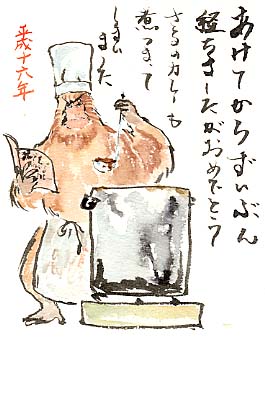 あけてからずいぶん
経ちましたがおめでとう
さるのカレーも
煮つまって
しまい
ました
平成十六年